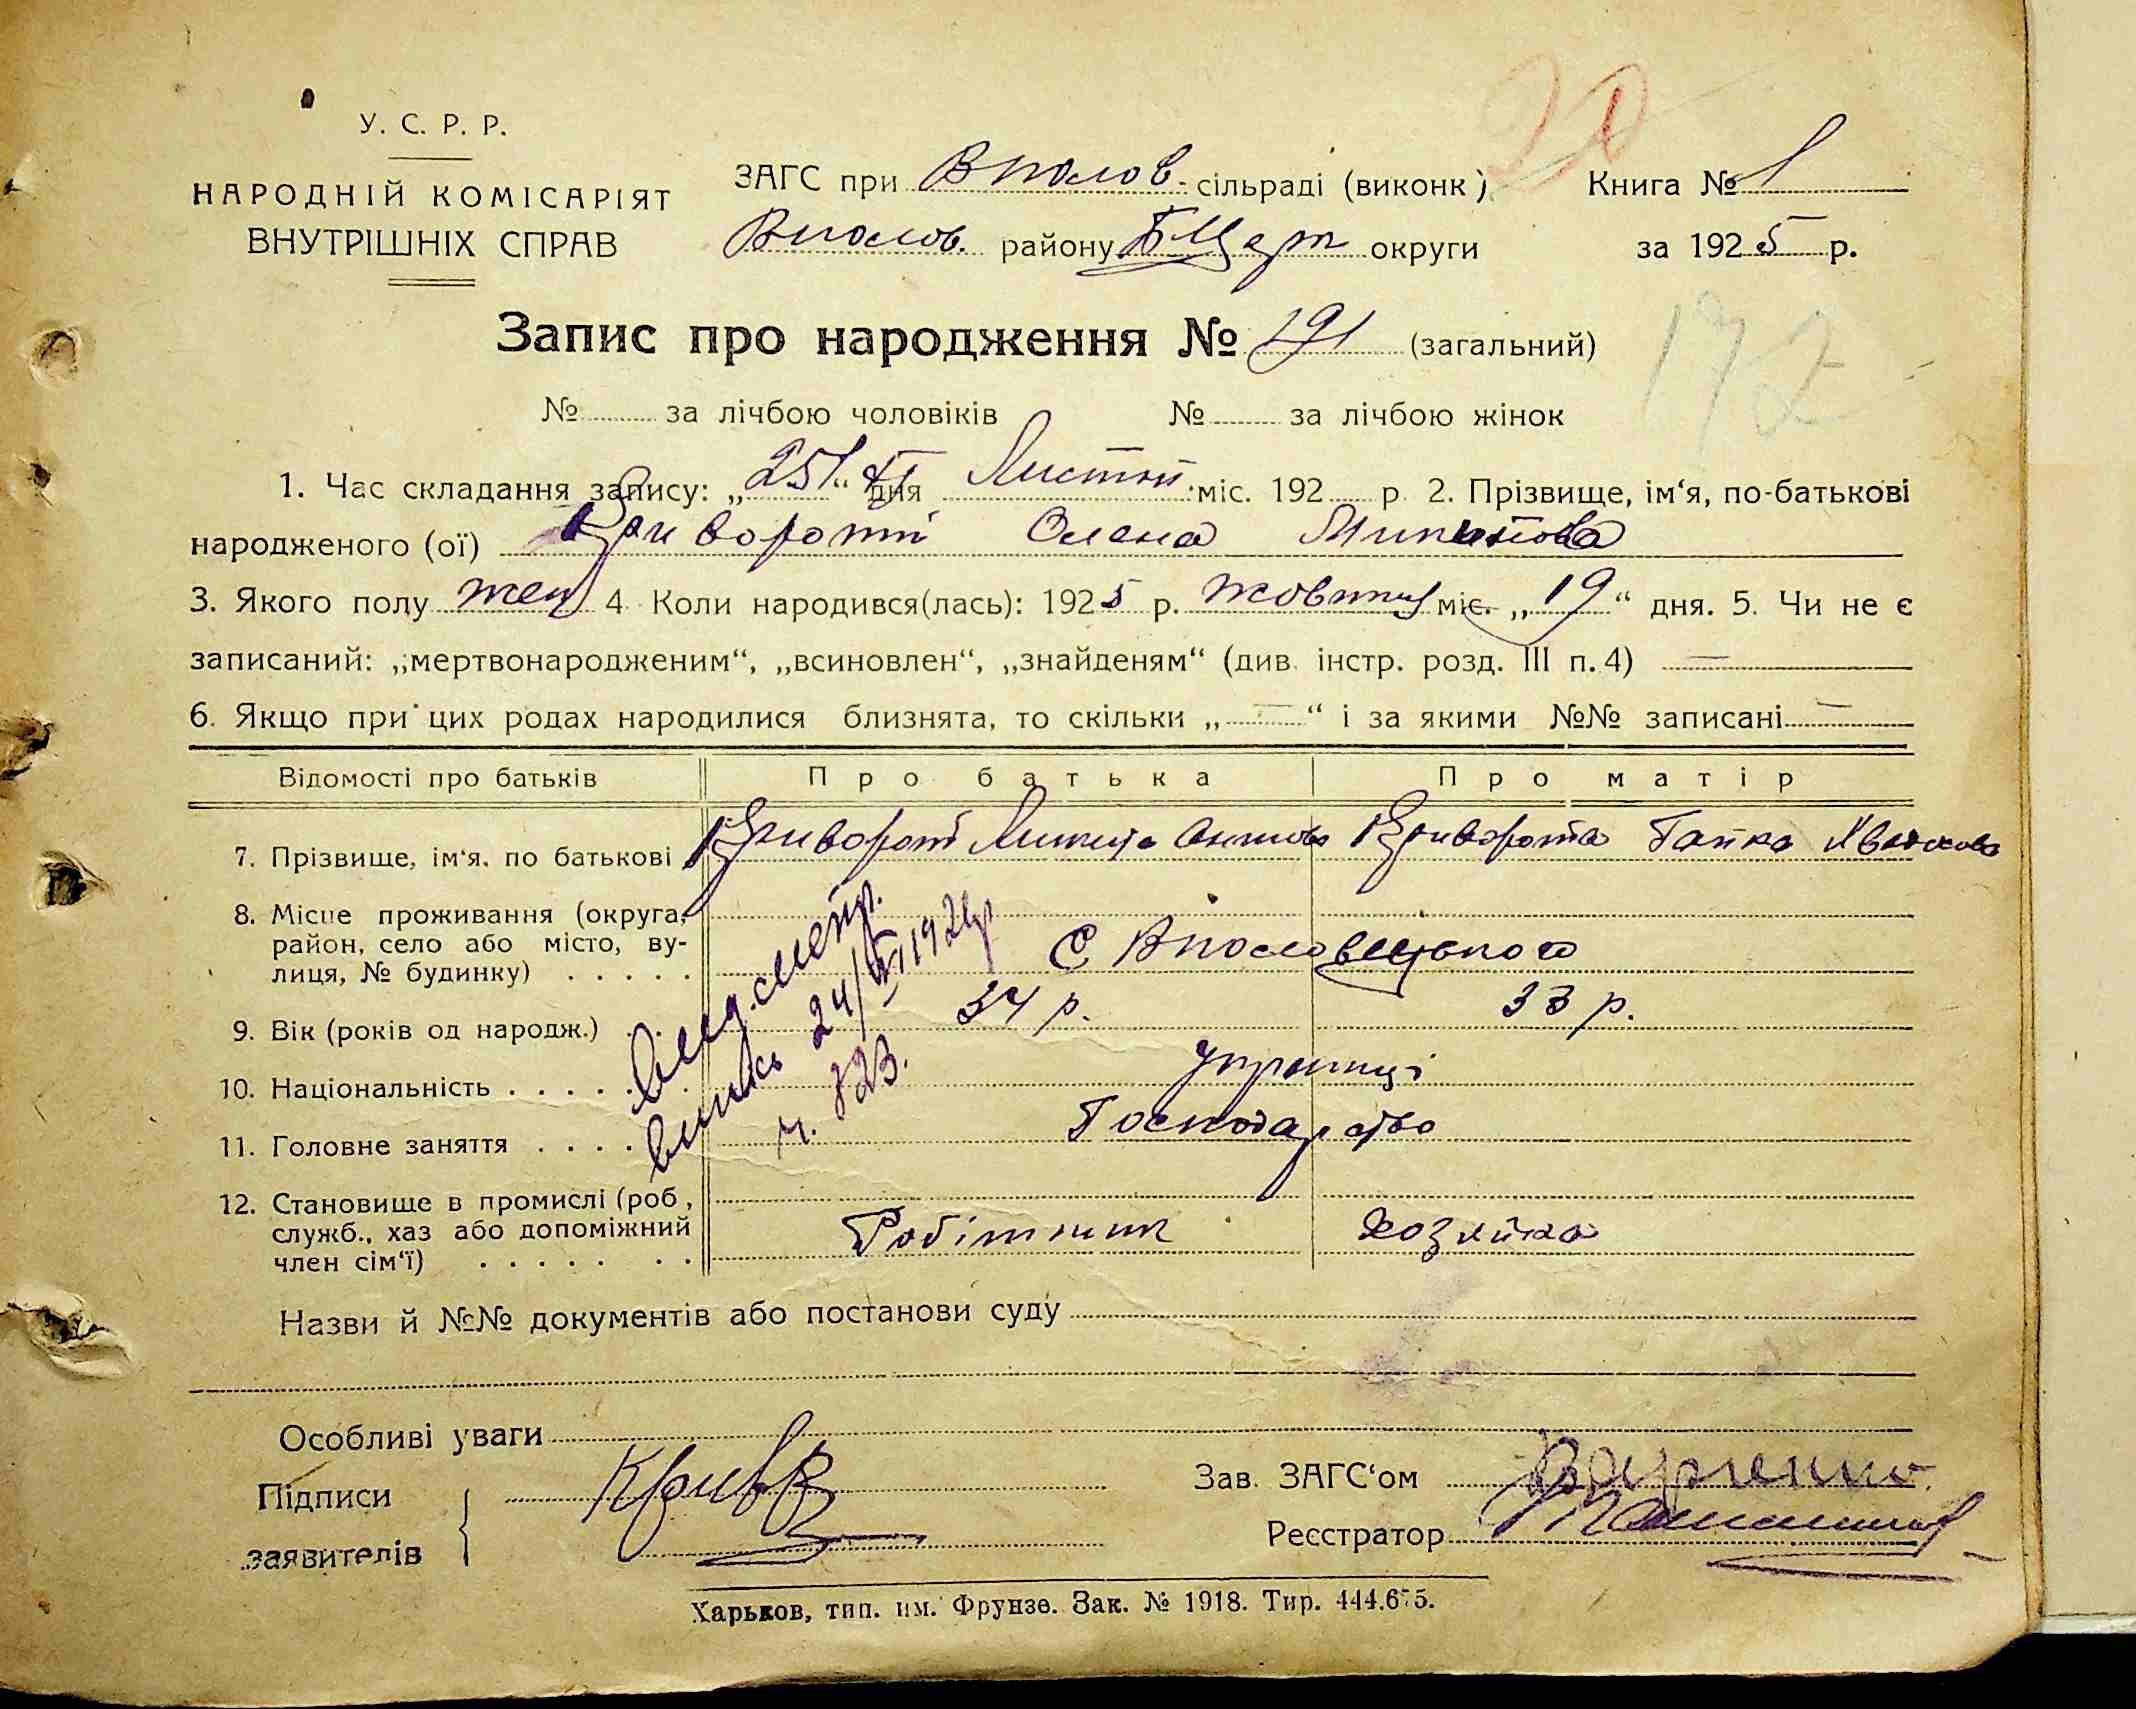 20
У. С. Р. Р.
НАРОДНІЙ КОМІСАРІЯТ
ВНУТРІШНІХ СПРАВ
ЗАГС при Вполов. сільраді (виконк) Книга № 1
Вполов. району БЦерк округи за 1925 р.
Запис про народження № 191 (загальний)
172
№ за лічбою чоловіків № за лічбою жінок
1. Час складання запису: „25/XI“ дня Листоп. міс. 192 р. 2. Прізвище, ім‘я, по-батькові
народженого (ої) Криворотй Олена Микитова
3. Якого полу жен 4. Коли народився(лась): 1925 р. жовтня міс. „19“ дня. 5. Чи не є
записаний: „мертвонародженим“, „всиновлен“, „знайденям“ (див. інстр. розд. III п. 4) —
6. Якщо при цих родах народилися близнята, то скільки „—“ і за якими №№ записані —
Відомості про батьків Про батька Про матір
7. Прізвище, ім‘я, по батькові Криворот Микита Криворота Гапка
8. Місце проживання (округа,
район, село або місто, ву-
лиця, № будинку) . . . . . С Вполовецького
9. Вік (років од народж.) . . 34 р. 33 р.
10. Національність . . . . . українці
11. Головне заняття . . . . Господарство
12. Становище в промислі (роб.,
служб., хаз або допоміжний
член сім‘ї) . . . . . . . Робітник хозяйка
вид. метр.
випись 24/VI 192 р
ч. 823.
Назви й №№ документів або постанови суду
Особливі уваги
Підписи
заявителів Крив
Зав. ЗАГС‘ом
Реєстратор
Харьков, тип. им. Фрунзе. Зак. № 1918. Тир. 444.675.